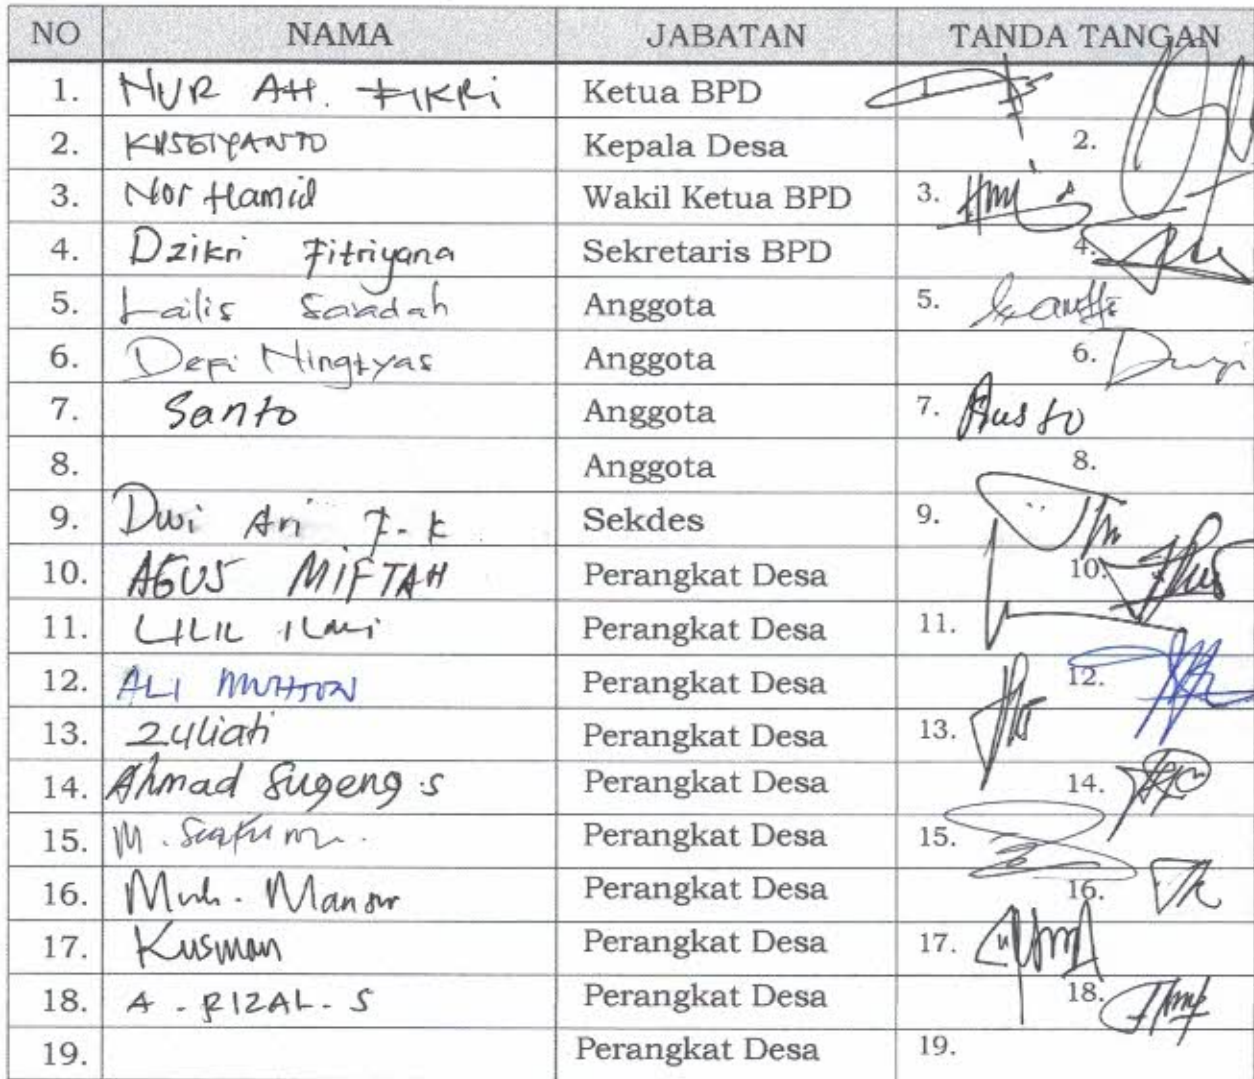 NO NAMA JABATAN TANDA TANGAN
1. NUR AH. FIKRi Ketua BPD 1.
2. KUSETYANTO Kepala Desa 2.
3. Nor Hamid Wakil Ketua BPD 3.
4. Dzikri Fitriyana Sekretaris BPD 4.
5. Lailis Saadah Anggota 5.
6. Depi Ningtyas Anggota 6.
7. Santo Anggota 7.
8. Anggota 8.
9. Dwi Ari F.K Sekdes 9.
10. AGUS MIFTAH Perangkat Desa 10.
11. LILIL ILmi Perangkat Desa 11.
12. ALI Perangkat Desa 12.
13. Zuliati Perangkat Desa 13.
14. Ahmad Sugeng.s Perangkat Desa 14.
15. M. Perangkat Desa 15.
16. Muh. Mansur Perangkat Desa 16.
17. Kusman Perangkat Desa 17.
18. A. RIZAL. S Perangkat Desa 18.
19. Perangkat Desa 19.